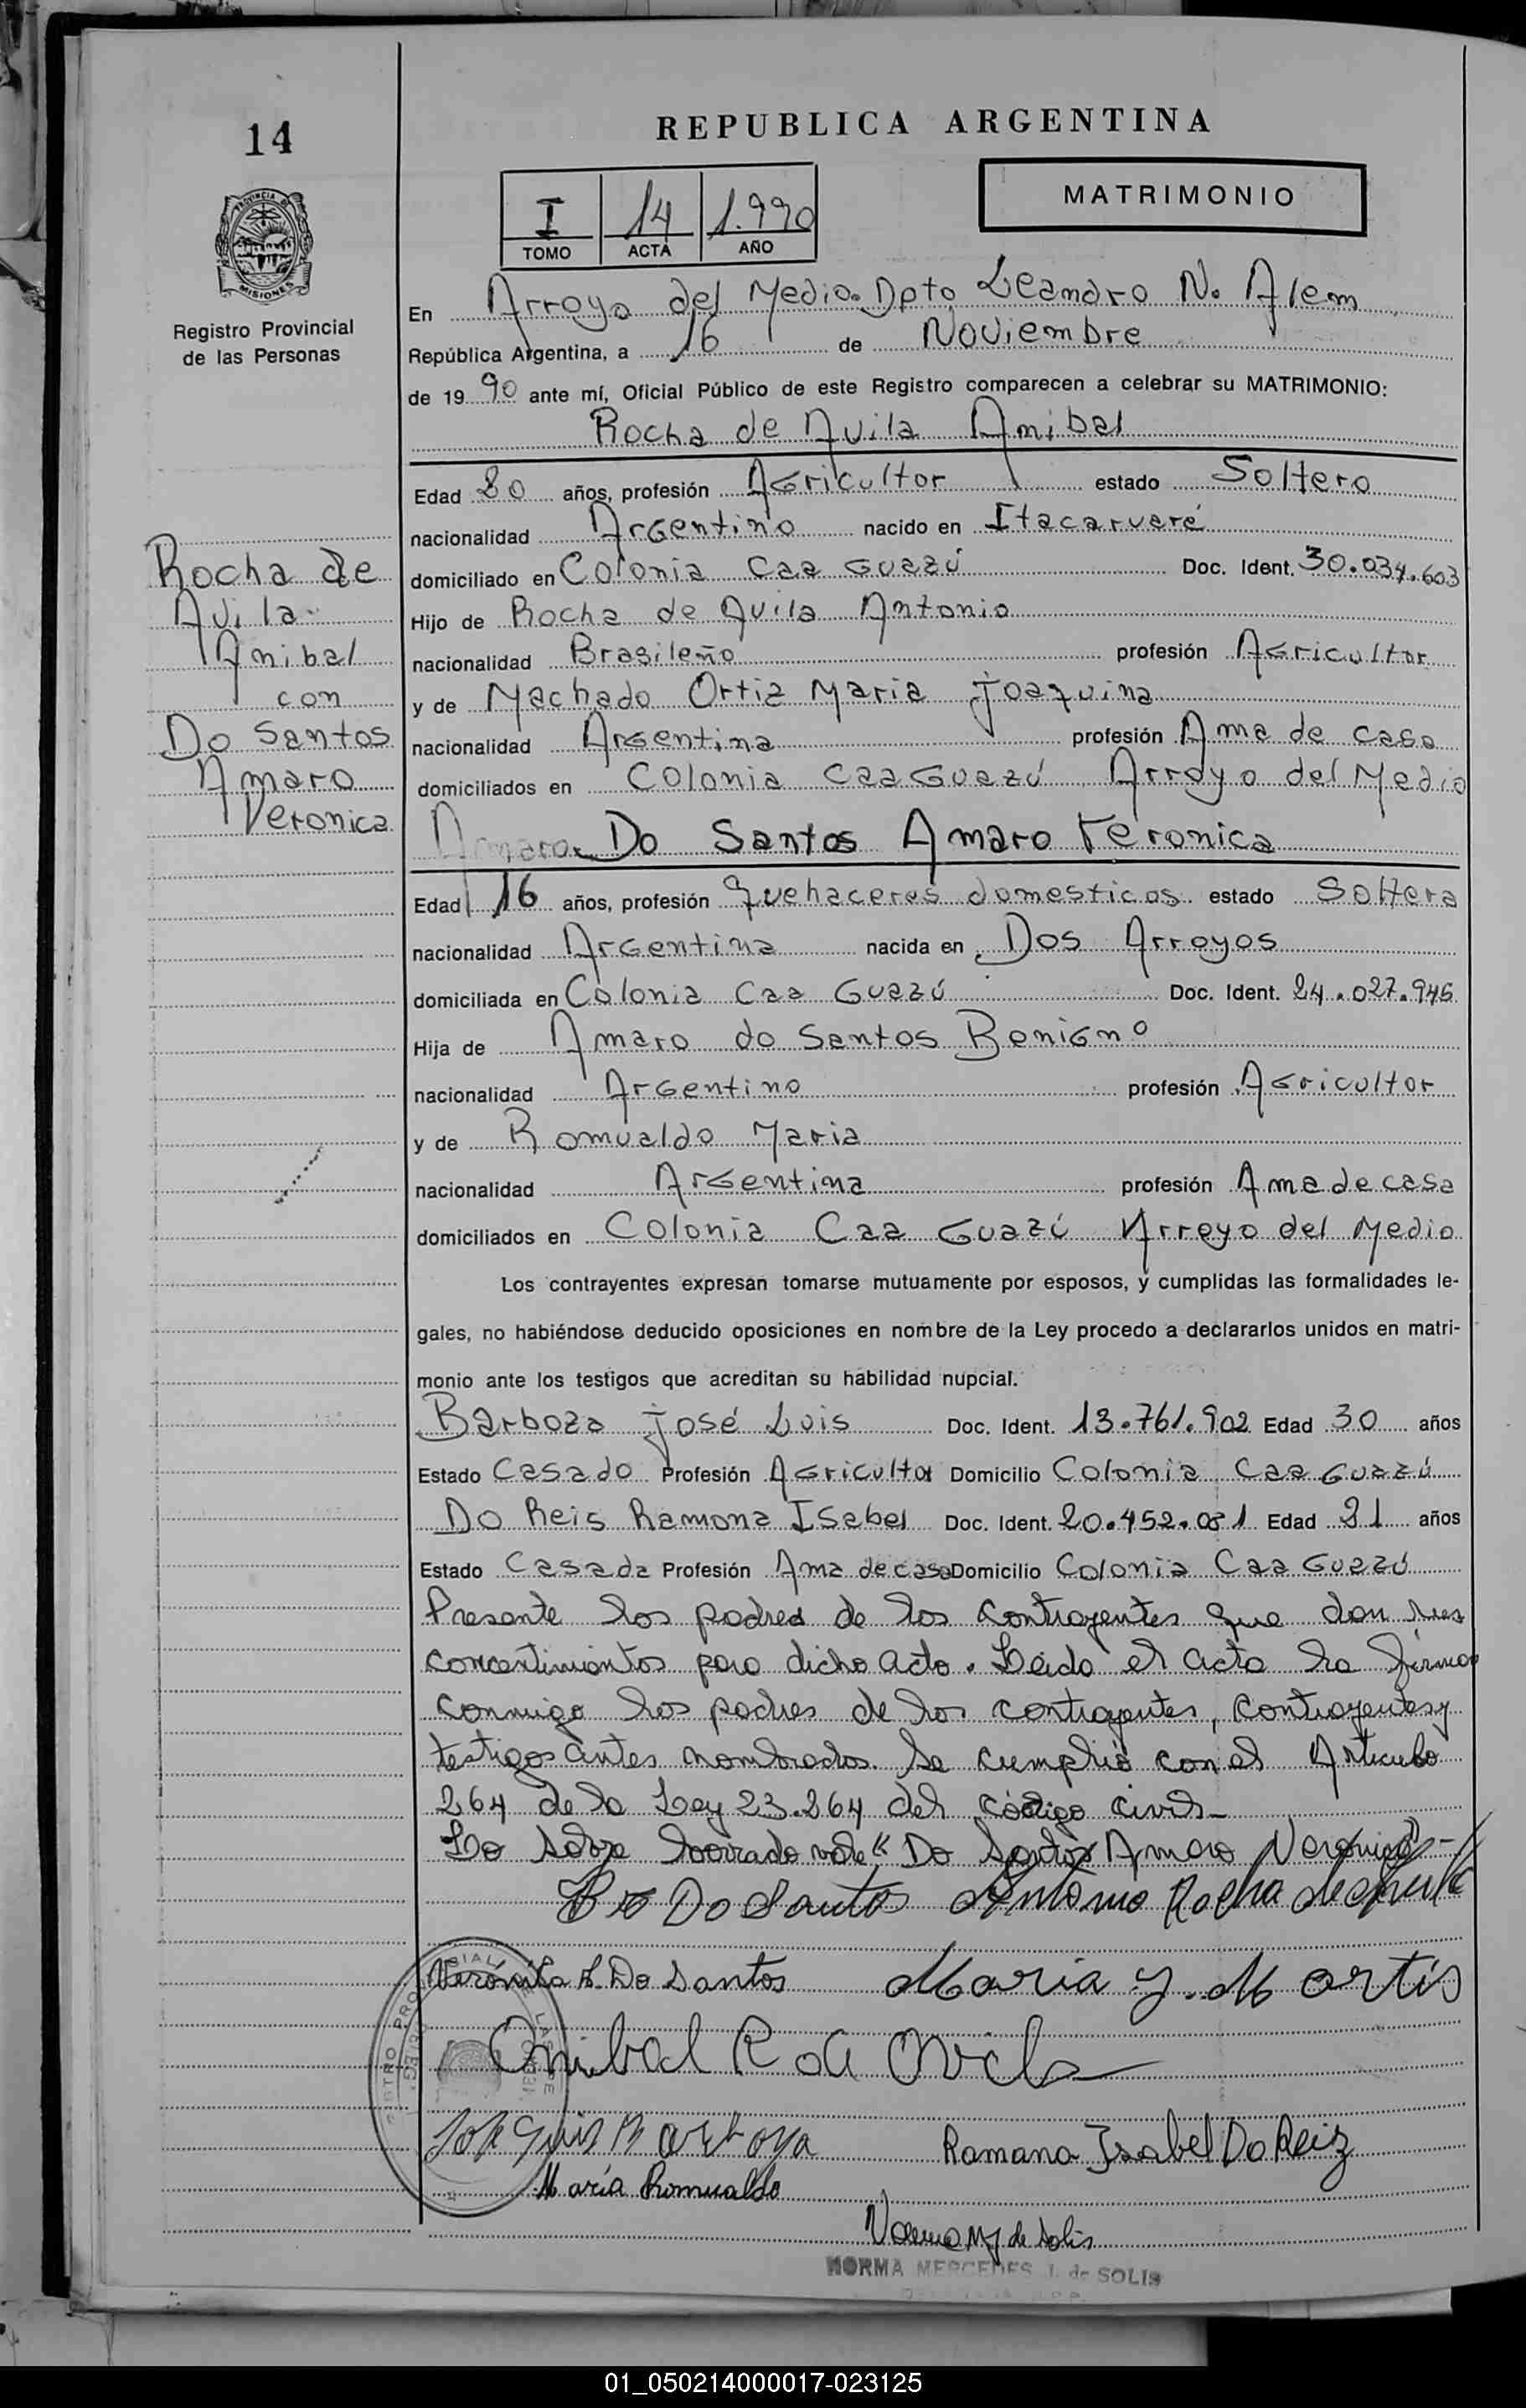 14
REPUBLICA ARGENTINA
MATRIMONIO
I 14 1.990
TOMO ACTA AÑO
PROVINCIA DE
MISIONES
Registro Provincial
de las Personas
En Arroyo del Medio. Dpto Leandro N. Alem
República Argentina, a 16 de Noviembre
de 19 90 ante mí, Oficial Público de este Registro comparecen a celebrar su MATRIMONIO:
Rocha de Avila Anibal
Edad 20 años, profesión Agricultor estado Soltero
nacionalidad Argentino nacido en Itacaruaré
domiciliado en Colonia Caa Guazú Doc. Ident. 30.034.603
Hijo de Rocha de Avila Antonio
nacionalidad Brasileño profesión Agricultor
y de Machado Ortiz Maria Joaquina
nacionalidad Argentina profesión Ama de casa
domiciliados en Colonia Caa Guazú Arroyo del Medio
Rocha de
Avila
Anibal
con
Do Santos
Amaro
Veronica
Amaro Do Santos Amaro Veronica
Edad 16 años, profesión Quehaceres domesticos estado Soltera
nacionalidad Argentina nacida en Dos Arroyos
domiciliada en Colonia Caa Guazú Doc. Ident. 24.027.945
Hija de Amaro do Santos Benigno
nacionalidad Argentino profesión Agricultor
y de Romualdo Maria
nacionalidad Argentina profesión Ama de casa
domiciliados en Colonia Caa Guazú Arroyo del Medio
Los contrayentes expresan tomarse mutuamente por esposos, y cumplidas las formalidades le-
gales, no habiéndose deducido oposiciones en nombre de la Ley procedo a declararlos unidos en matri-
monio ante los testigos que acreditan su habilidad nupcial.
Barboza José Luis Doc. Ident. 13.761.902 Edad 30 años
Estado Casado Profesión Agricultor Domicilio Colonia Caa Guazú
Do Reis Ramona Isabel Doc. Ident. 20.452.081 Edad 21 años
Estado Casada Profesión Ama de casa Domicilio Colonia Caa Guazú
Presente los padres de los contrayentes que dan sus
concentimientos para dicho acto. Leida el acta la firman
conmigo los padres de los contrayentes, contrayentes y
testigos antes nombrados. Se cumplió con el Articulo
264 de la Ley 23.264 del código civil-
Lo sobre borrado vale "Do Santos Amaro Veronica"-
Do Santos Antonio Rocha de Avila
Verónica A. Do Santos Maria J. M Ortis
Anibal R de Avila
José Luis Barboza Ramona Isabel Do Reiz
María Romualdo
Norma M J de Solis
NORMA MERCEDES J. de SOLIS
01_050214000017-023125